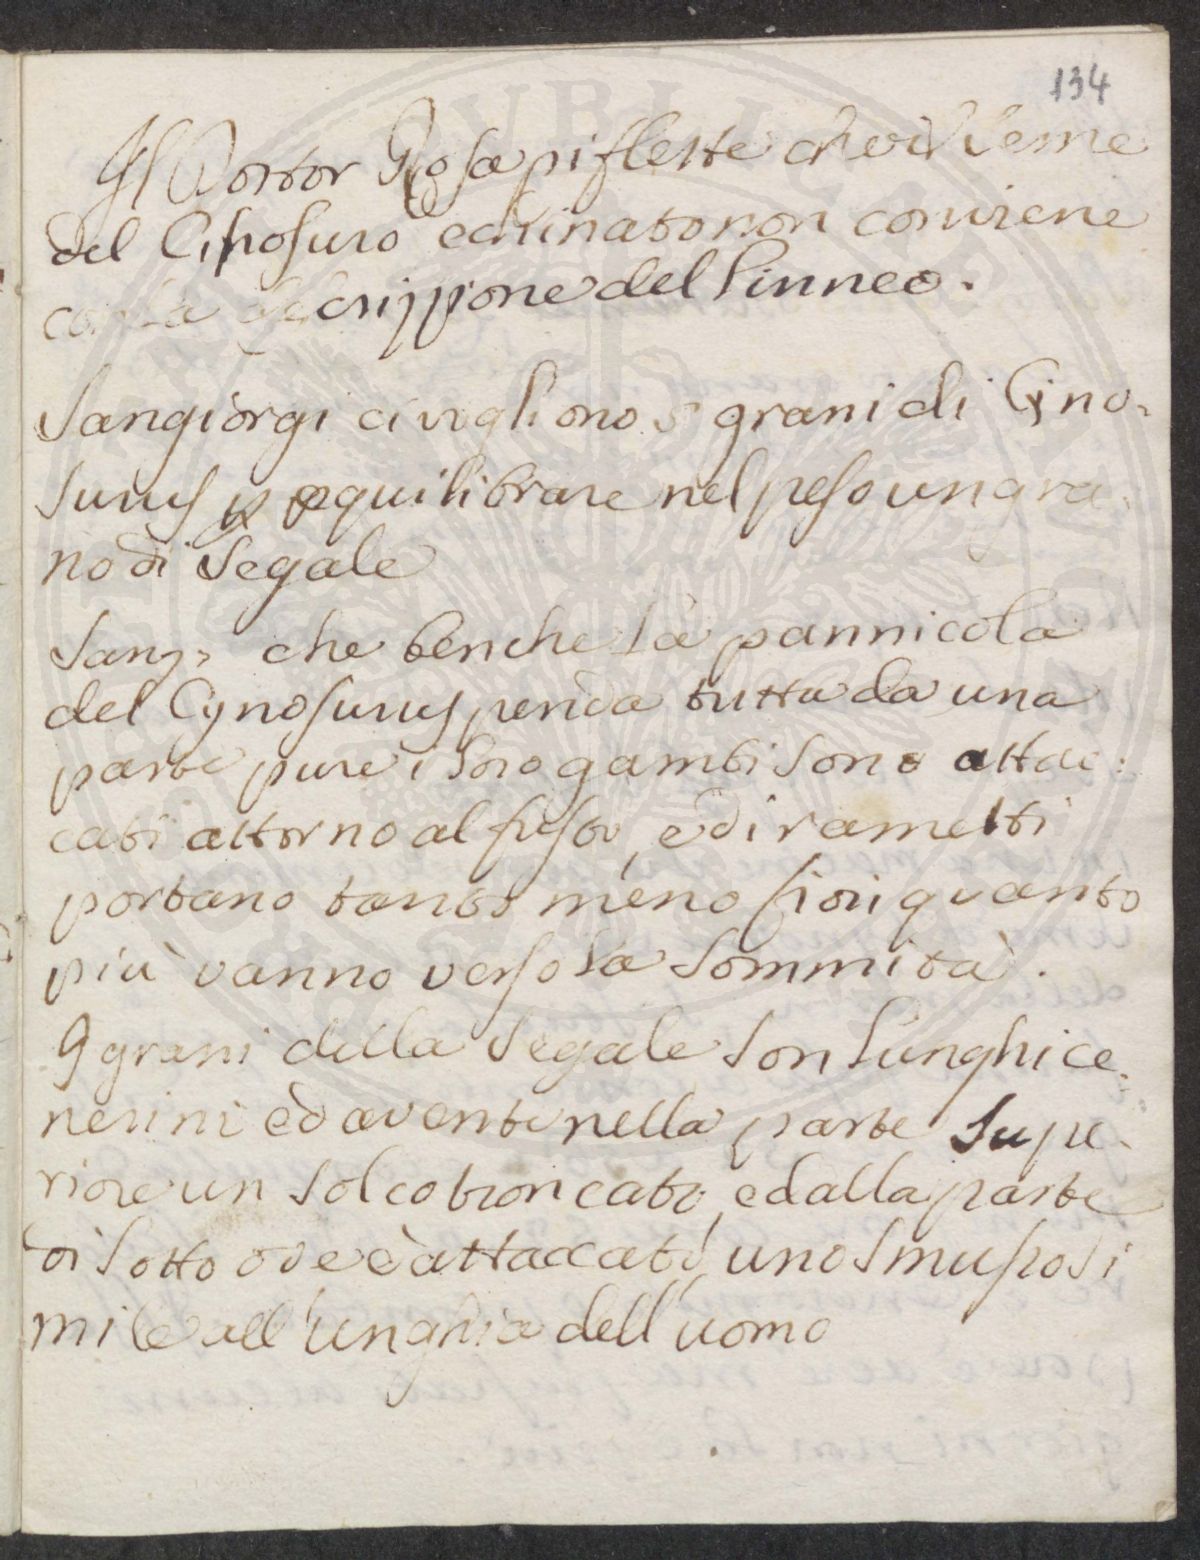 134
Il Dottor Rosa riflette che il seme
del Cinosuro echinato non conviene
con la descrizzione del Linneo.
Sangiorgi ci vogliono 5 grani di Cyno-
surus p equilibrare nel peso un gra-
no di Segale
Sang, che benche la pannicola
del Cynosurus penda tutta da una
parte pure i loro gambi sono attac:
cati attorno al fusto, ed i rametti
portano tanto meno fiori quanto
più vanno verso la sommità.
I grani della Segale son lunghi ce-
nerini ed aventi nella parte supe-
riore un solco troncato, e dalla parte
di sotto ov'è attaccato, uno smusso si
mile all'unghia dell'uomo